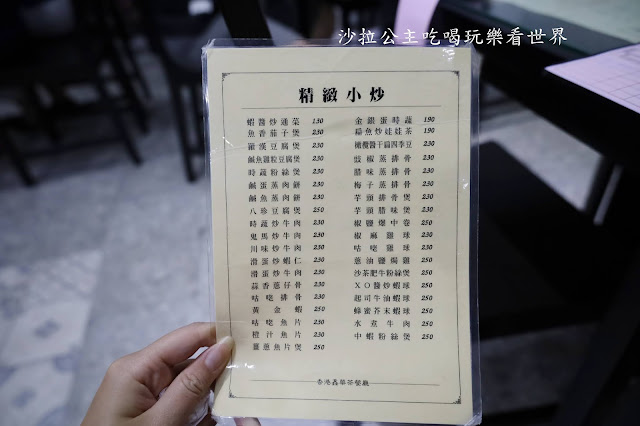 沙拉公主吃喝玩樂看世界
精緻小炒
蝦醬炒通菜 130
魚香茄子煲 230
羅漢豆腐煲 230
鹹魚雞粒豆腐煲 230
時蔬粉絲煲 230
鹹蛋蒸肉餅 230
鹹魚蒸肉餅 230
八珍豆腐煲 250
時蔬炒牛肉 230
鬼馬炒牛肉 230
川味炒牛肉 230
滑蛋炒蝦仁 230
滑蛋炒牛肉 230
蒜香蔥仔骨 230
咕咾排骨 230
黃金蝦 250
咕咾魚片 230
橙汁魚片 230
薑蔥魚片煲 250
金銀蛋時蔬 190
鯪魚炒娃娃菜 190
橄欖醬干扁四季豆 230
豉椒蒸排骨 230
腊味蒸排骨 230
梅子蒸排骨 230
芋頭排骨煲 230
芋頭腊味煲 230
椒鹽爆中卷 250
椒麻雞球 230
咕咾雞球 230
蔥油鹽焗雞 250
沙茶肥牛粉絲煲 250
XO醬炒蝦球 250
起司牛油蝦球 250
蜂蜜芥末蝦球 250
水煮牛肉 250
中蝦粉絲煲 250
香港鑫華茶餐廳